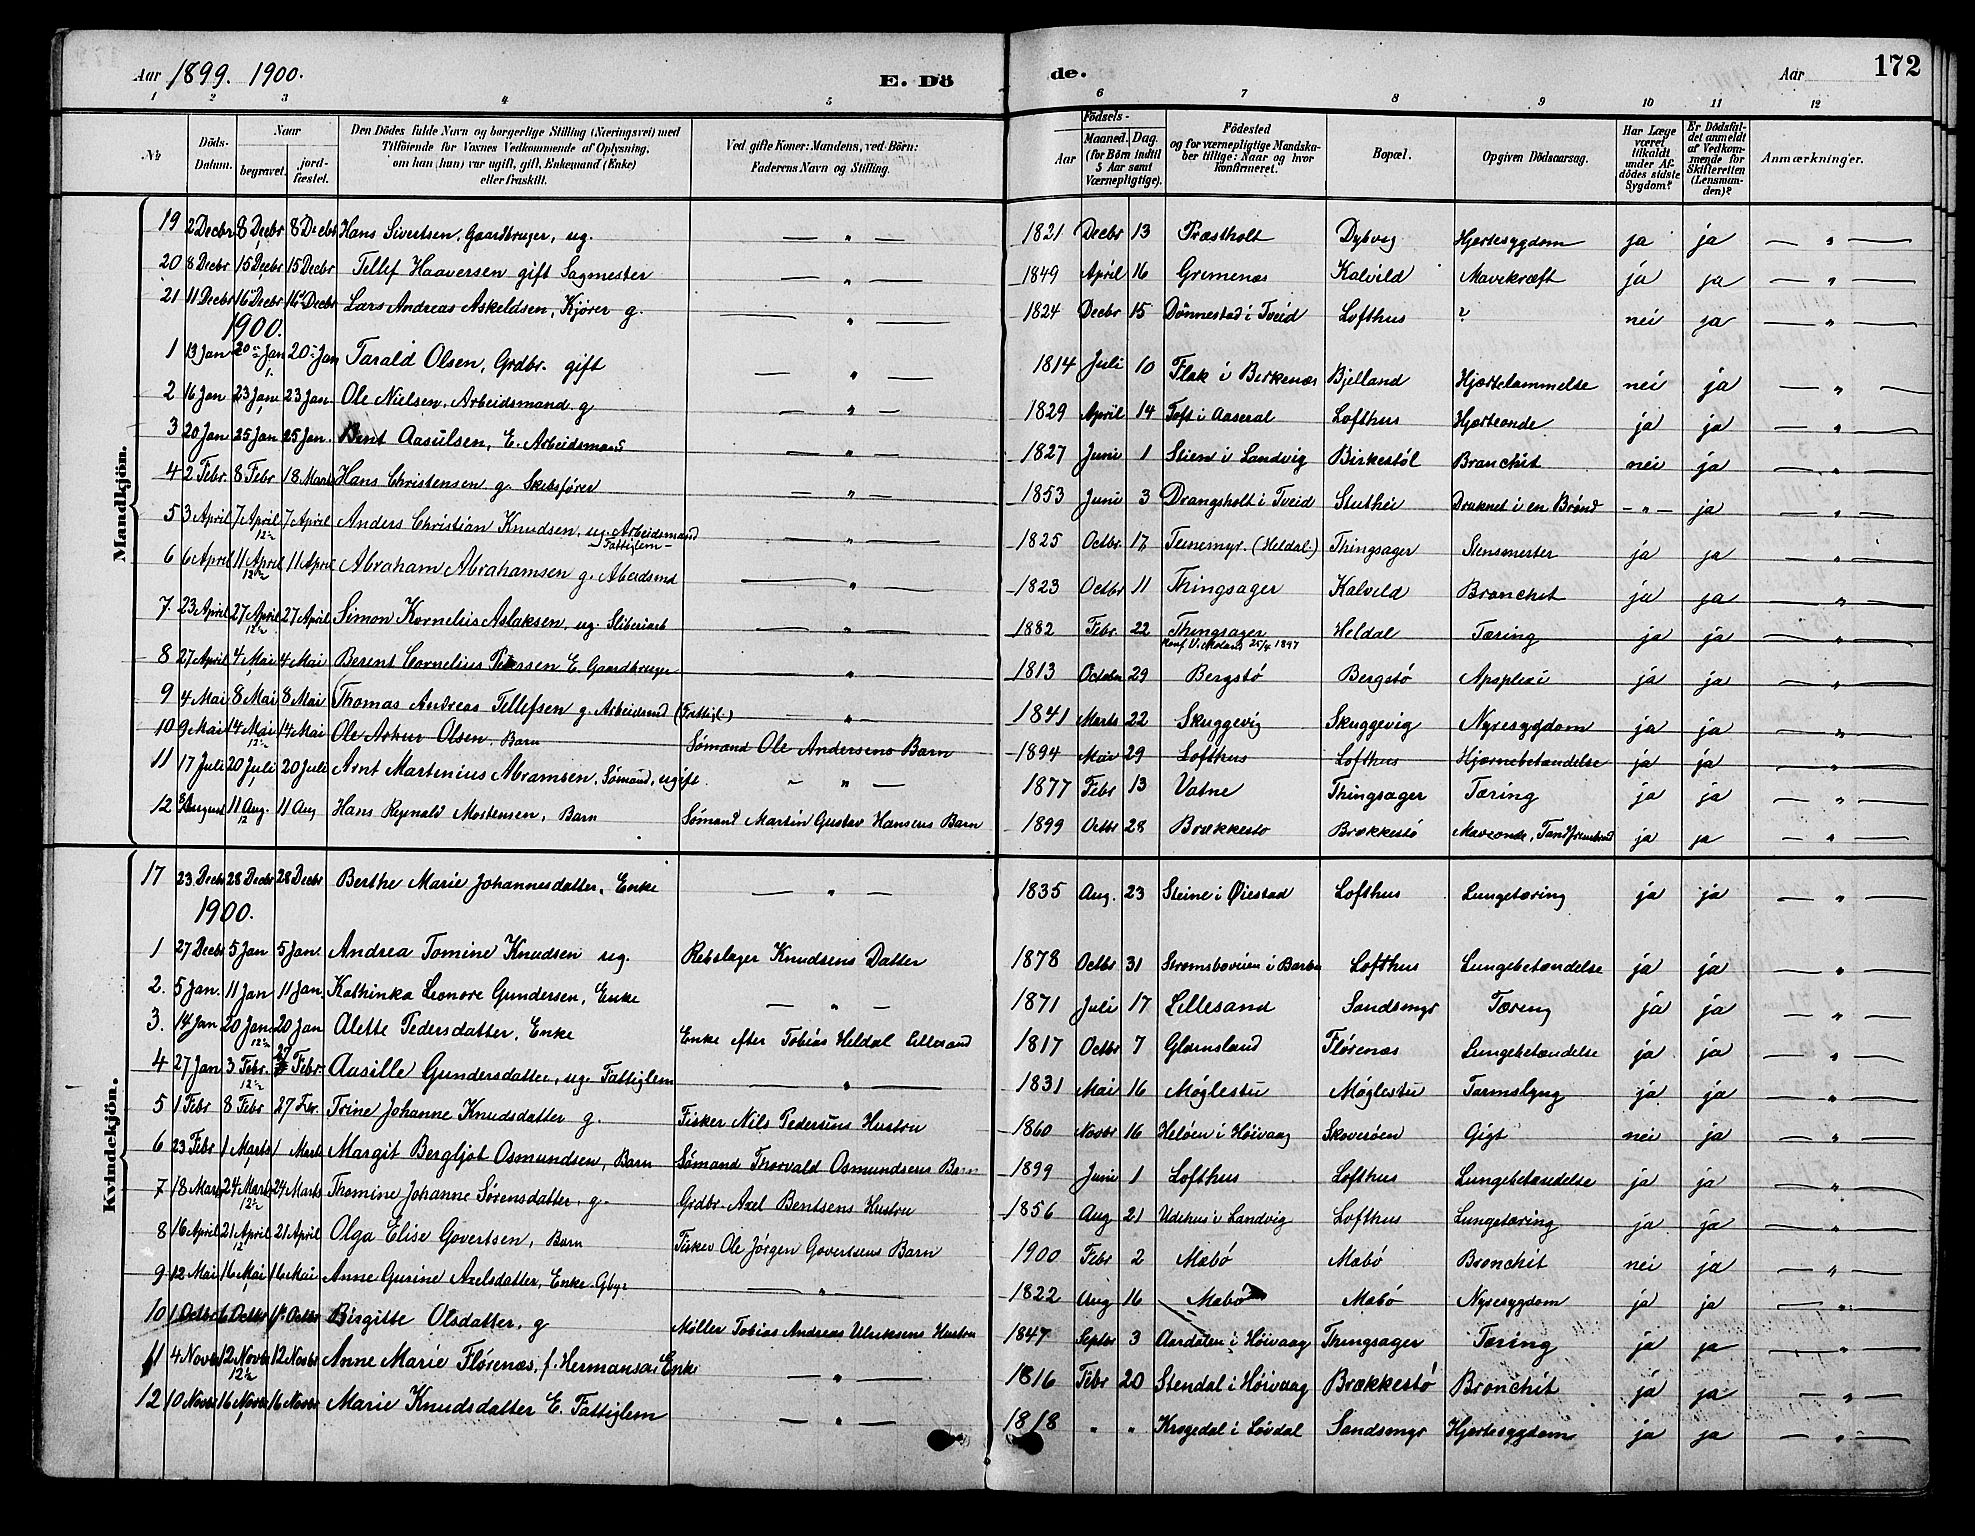 Aar 1899. 1900. E. Dö de. Aar 172
1 2 3 4 5 6 7 8 9 10 11 12
№ Döds-Datum. Naar begravet. jordfæstet. Den Dödes fulde Navn og borgerlige Stilling (Næringsvei) med Tilföiende for Voxnes Vedkommende af Oplysning, om han (hun) var ugift, gift, Enkemand (Enke) eller fraskilt. Ved gifte Koner: Mandens, ved Börn: Faderens Navn og Stilling. Födsels- Aar Maaned. Dag. (for Börn indtil 5 Aar samt Værnepligtige). Födested og for værnepligtige Mandskaber tillige: Naar og hvor konfirmeret. Bopæl. Opgiven Dödsaarsag. Har Læge været tilkaldt under Afdödes sidste Sygdom? Er Dödsfaldet anmeldt af Vedkommende for Skifteretten (Lensmanden)? Anmærkninger.
Mandkjön.
19 2 Decbr 8 Decbr 8 Decbr Hans Sivertsen, Gaardbruger, ug. — " — 1821 Decbr 13 Præstholt Dybvig Hjertesygdom ja ja — " —
20 8 Decbr 15 Decbr 15 Decbr Tellef Haaversen gift Sagmester — " — 1849 April 16 Gremenæs Kalvild Mavekræft ja ja — " —
21 11 Decbr 16 Decbr 16 Decbr Lars Andreas Askeldsen, Kjører g. — " — 1824 Decbr 15 Dønnestad i Tveid Lofthus ? nei ja — " —
1900.
1 13 Jan 20 Jan 20 Jan Tarald Olsen, Grdbr. gift — " — 1814 Juli 10 Flak i Birkenæs Bjelland Hjertelammelse nei ja — " —
2 16 Jan 23 Jan 23 Jan Ole Nielsen, Arbeidsmand g — " — 1829 April 14 Toft i Aaseral Lofthus Hjerteonde ja ja — " —
3 20 Jan 25 Jan 25 Jan. Bent Aasulsen, E. Arbeidsmand — " — 1827 Juni 1 Stien i Landvig Birkestøl Bronchit nei ja — " —
4 2 Febr. 8 Febr 18 Marts Hans Christensen g. Skibsfører — " — 1853 Juni 3 Drangsholt i Tveid Stuthei Druknet i en Brønd — " — ja — " —
5 3 April 7 April 7 April Anders Christian Knudsen, ug. Arbeidsmand — " — 1825 Octbr 17 (Heldal) Thingsager Stensmerter ja ja — " —
12½ Fattiglem
6 6 April 11 April 11 April Abraham Abrahamsen g. Abeidsmd — " — 1823 Octbr 11 Thingsager Kalvild Bronchit ja ja — " —
12½
7. 23 April 27 April 27 April Simon Kornelius Aslaksen, ug. — " — 1882 Febr. 22 Thingsager Heldal Tæring ja ja — " —
12½ Konf V. Moland 25/4 1897
8 27 April 4 Mai 4 Mai Berent Cornelius Petersen E. Gaardbruger — " — 1813 October 29 Bergstø Bergstø Apoplexi ja ja — " —
9 4 Mai 8 Mai 8 Mai Thomas Andreas Tellefsen g. Arbeidsmd (Fattigl.) — " — 1841 Marts 22 Skuggevig Skuggevig Nyresygdom ja ja — " —
10 9 Mai 14 Mai 14 Mai Ole Artur Olsen, Barn Sømand Ole Andersens Barn 1894 Mai 29 Lofthus Lofthus Hjernebetændelse ja ja — " —
12½
11 17 Juli 20 Juli 20 Juli Arnt Martenius Abramsen, Sømand, ugift. — " — 1877 Febr 13 Vatne Thingsager Tæring ja ja — " —
12 August 11 Aug. 11 Aug Hans Reynald Mortensen, Barn Sømand Martin Gustav Hansens Barn 1899 Octbr 28 Brækkestø Brækkestø Maveonde, Tandfrembrud ja ja — " —
12
Kvindekjön.
17 23 Decbr 28 Decbr 28 Decbr Berthe Marie Johannesdatter, Enke — " — 1835 Aug. 23 Steine i Øiestad Lofthus Lungetæring ja ja — " —
1900.
1 27 Decbr 5 Jan 5 Jan. Andrea Tomine Knudsen ug. Rebslager Knudsens Datter 1878 Octbr 31 Strømsbovien i Barbu Lofthus Lungebetændelse ja ja — " —
2. 5 Jan. 11 Jan 11 Jan Kathinka Leonore Gundersen, Enke — " — 1871 Juli 17 Lillesand Sandsmyr Tæring ja ja — " —
3. 14 Jan 20 Jan 20 Jan Alette Pedersdatter, Enke Enke efter Tobias Heldal Lillesand 1817 Octbr 7 Glamsland Flørenæs Lungebetændelse ja ja — " —
12½
4 27 Jan 3 Febr. 27 Febr. Aasille Gundersdatter, ug. Fattiglem — " — 1831 Mai 16 Møglestu Møglestu Tarmslyng ja ja — " —
12½
5 1 Febr 8 Febr 27 Febr. Trine Johanne Knudsdatter g. Fisker Nils Pedersens Hustru 1860 Novbr 16 Heløen i Høivaag Skoverøen Gigt nei ja — " —
6 23 Febr 1 Marts 1 Marts Margit Bergljot Osmundsen, Barn Sømand Thorvald Osmundsens Barn 1899 Juni 1 Lofthus Lofthus Lungebetændelse ja ja — " —
7 18 Marts 24 Marts 24 Marts Thomine Johanne Sørensdatter, g. Grdbr. Axel Bentsens Hustru 1856 Aug 21 Udehus i Landvig Lofthus Lungetæring ja ja — " —
12½
8 16 April 21 April 21 April Olga Elise Govertsen, Barn Fisker Ole Jørgen Govertsens Barn 1900 Febr 2 Mabø Mabø Bronchit nei ja — " —
12
9 12 Mai 16 Mai 16 Mai Anne Gurine Axelsdatter, Enke — " — 1822 Aug 16 Mabø Mabø Nyresygdom ja ja — " —
10 1 Octbr 6 Octbr Octbr Birgitte Olsdatter, g Møller Tobias Andreas Ulriksens Hustru 1847 Septbr 3 Aardalen i Høivaag Thingsager Tæring ja ja — " —
11 4 Novbr 12 Novbr 12 Novbr Anne Marie Flørenæs, f. Hermansen Enke — " — 1816 Febr 20 Stendal i Høivaag Brækkestø Bronchit ja ja — " —
12½
12 10 Novbr 16 Novbr 16 Novbr Marie Knudsdatter E. Fattiglem — " — 1818 " " Krogedal i Løvdal Sandsmyr Hjertesygdom ja ja — " —